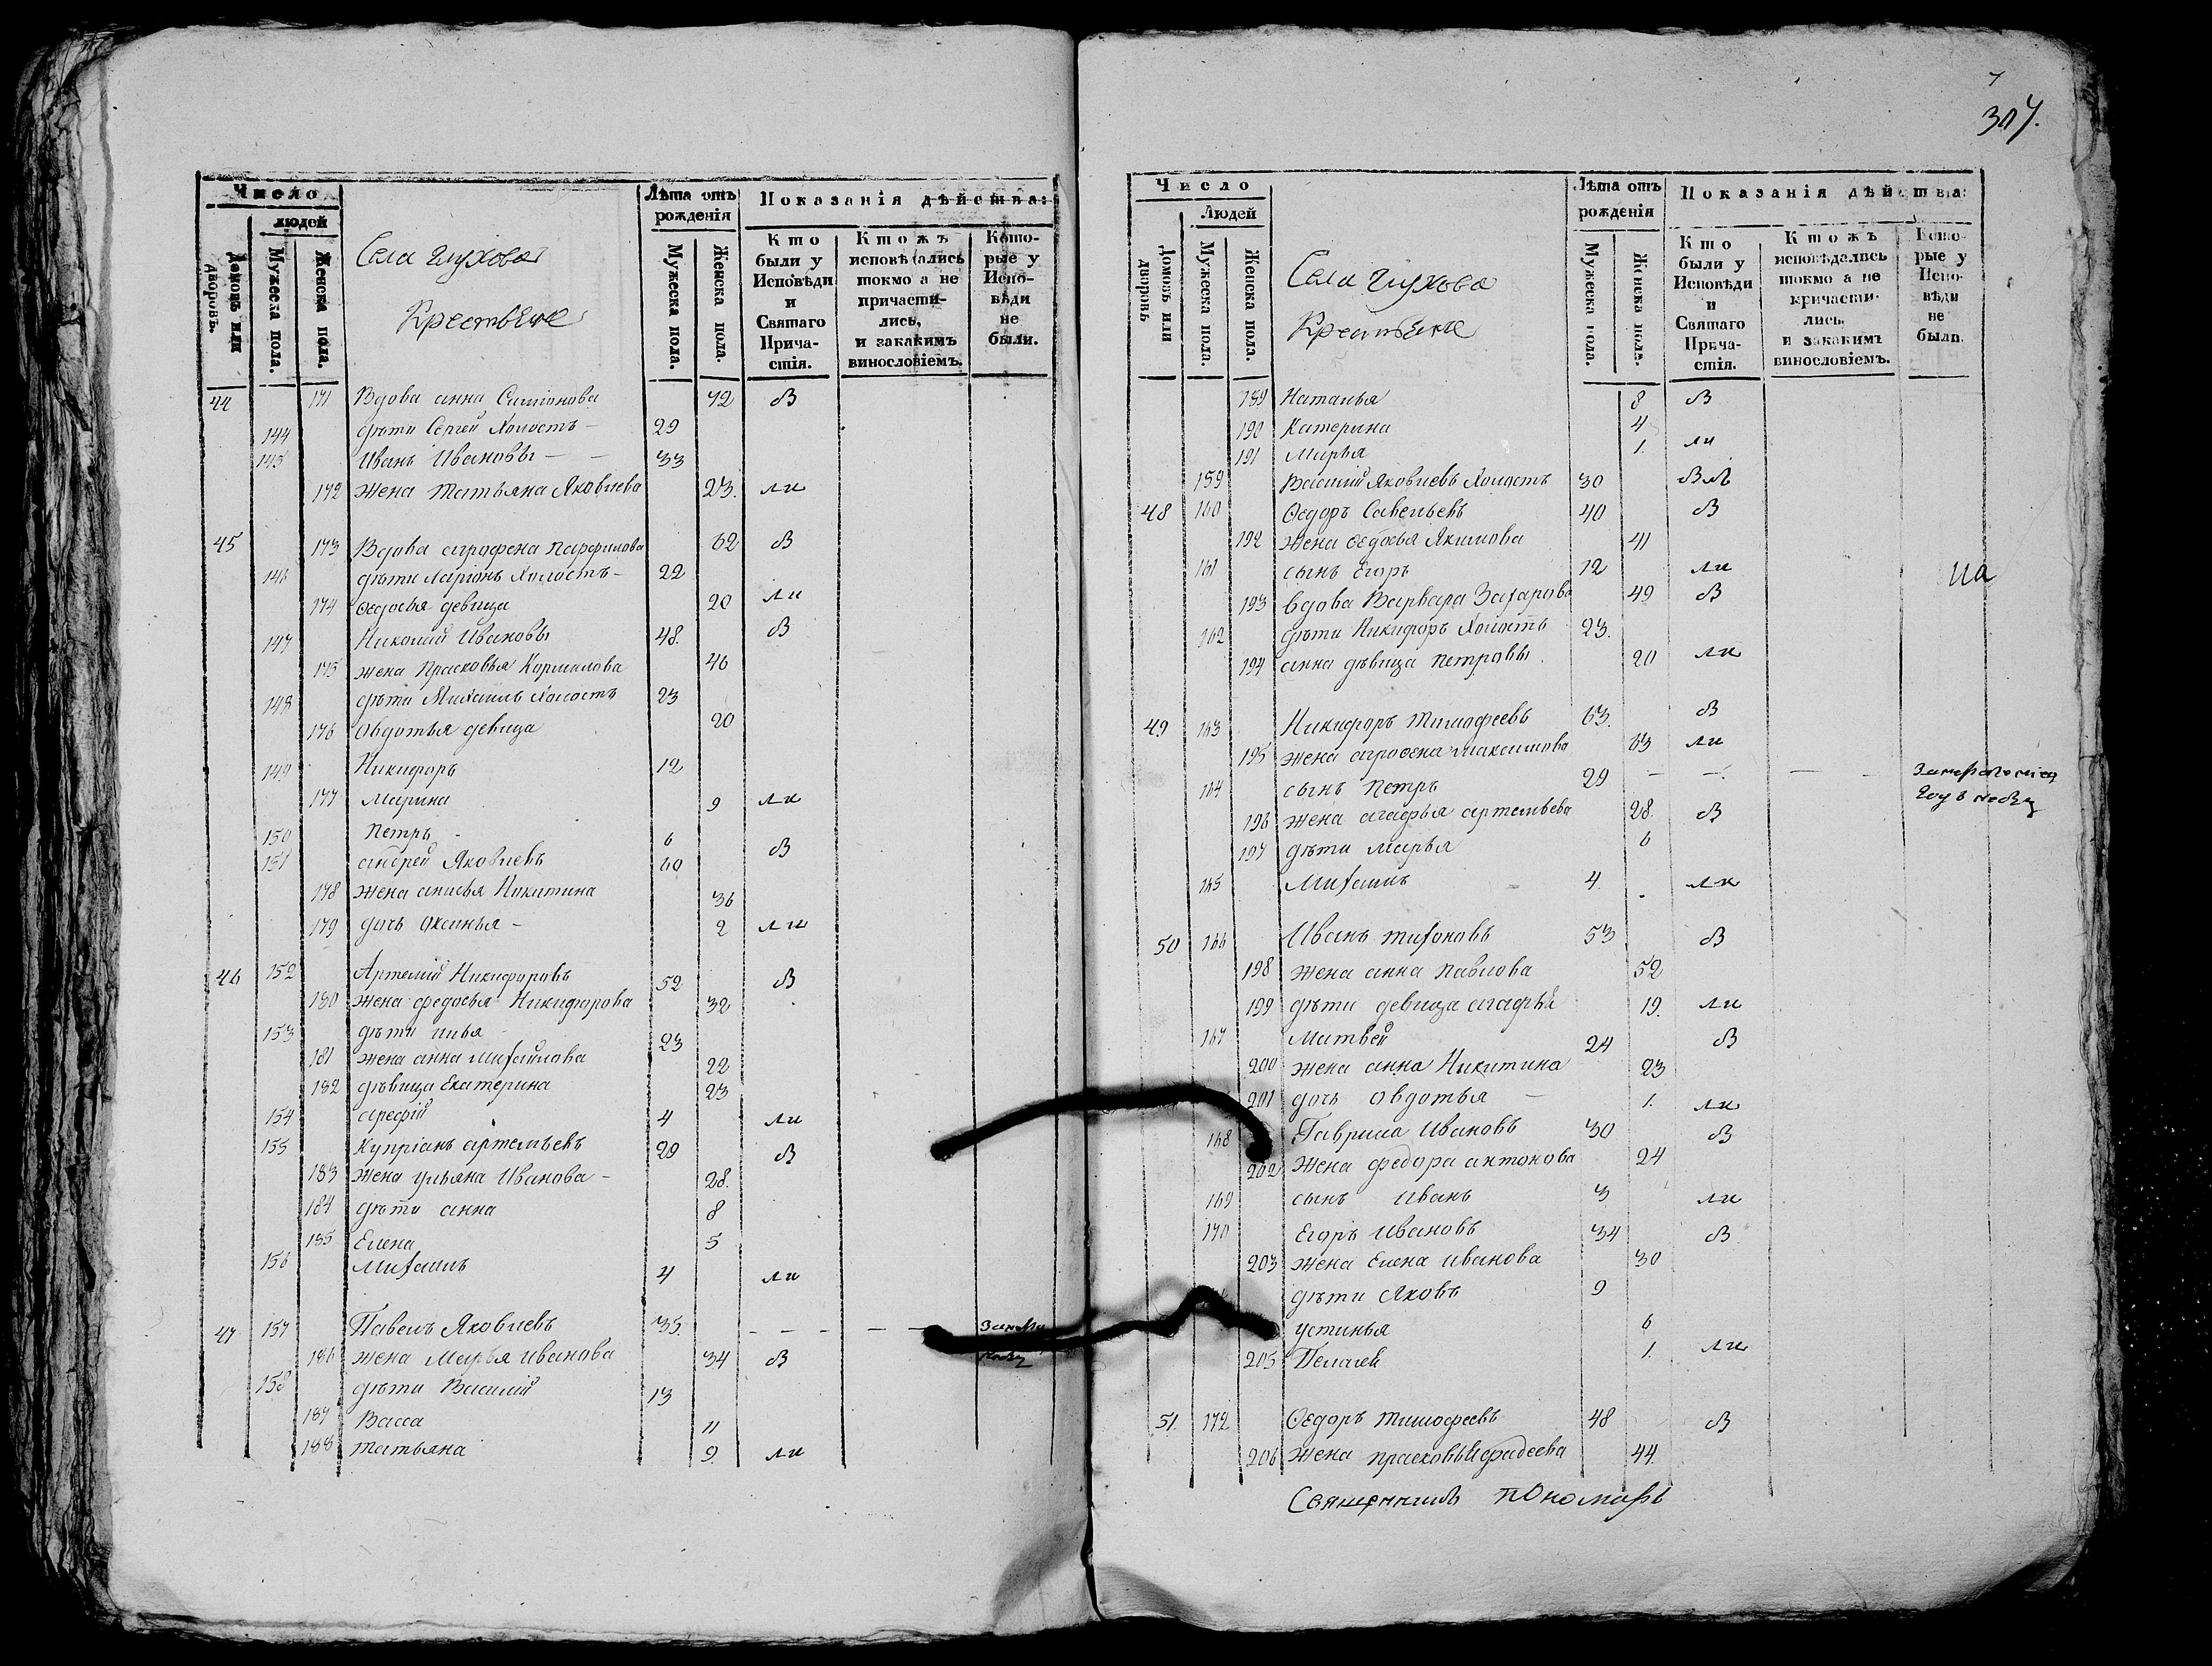 Число
людей
Домовъ или дворовъ.
Мужеска пола.
Женска пола.
Села Глухова
Крестьяне
Лѣта отъ рожденія
Мужеска пола.
Женска пола.
Показанія дѣйства:
Кто были у Исповѣди и Святаго Прича-стія.
Ктожъ исповѣдались токмо а не причасти-лись, и закакимъ винословіемъ.
Кото-рые у Испо-вѣди не были.
44 171 Вдова анна Симіонова 72 В
144 дѣти Сергей Холостъ - 29
145 Иванъ Ивановы - - 33
172 жена Татьяна Яковлева 23. ли
45 173 Вдова аграфена парфилова 62 В
146 дѣти ларіонъ Холостъ - 22
174 Ѳедосья девица 20 ли
147 Николай Ивановы 48. В
175 жена Прасковья Кормилова 46
148 дѣти Михаилъ Холостъ 23
176 Овдотья девица 20
149 Никифоръ 12
177 Марина 9 ли
150 Петръ - 6
151 андрей Яковлевъ 40 В
178 жена анисья Никитина 36
179 дочь Оксинья - 2 ли
46 152 Артемій Никифоровъ 52 В
180 жена федосья Никифорова 32
153 дѣти илья 23
181 жена анна михайлова 22
182 дѣвица Екатерина 23
154 арефій 4 ли
155 Купріанъ артемьевъ 29 В
183 жена ульяна Иванова - 28.
184 дѣти анна 8
185 Елена 5
156 Михаилъ 4 ли
47 157 Павелъ Яковлевъ 35. - - - - -
186 жена Марья иванова 34 В
158 дѣти Василій 13
187 Васса 11
188 татьяна 9. ли
7
307.
Число
Людей
Домовъ или дворовъ
Мужеска пола.
Женска пола.
Села Глухова
Крестьяне
Лѣта отъ рожденія
Мужеска пола.
Женска пола.
Показанія дѣйства:
Кто были у Исповѣди и Святаго Прича-стія.
Ктожъ исповѣдались токмо а не причасти-лись. и закакимъ винословіемъ.
Кото-рые у Испо-вѣди не были.
189 Наталья 8 В
190 Катерина 4
191 Марья 1. ли
159 Василій Яковлевъ Холостъ 30
48 160 Ѳедоръ Савельевъ 40 В
192 жена Ѳедосья Якимова 41
161 сынъ Егоръ 12 ли
193 вдова Варвара Захарова 49 В
162 дѣти Никифоръ Холостъ 23.
194 анна дѣвица петровы 20 ли
49 163 Никифоръ тимофеевъ 63. В
195 жена агрофена максимова 63 ли
164 сынъ петръ 29 - - -
196 жена агафья артемьева 28. В
197 дѣти марья 6
165 Михаилъ 4. ли
50 166 Иванъ тихоновъ 53 В
198 жена анна павлова 52
199 дѣти девица агафья 19. ли
167 матвей 24 В
200 жена анна Никитина 23
201 дочь овдотья - 1. ли
168 Гаврила Ивановъ 30 В
202 жена федора антонова 24
169 сынъ иванъ 3 ли
170 Егоръ Ивановъ 34 В
203 жена Елена иванова 30
дѣти Яковъ 9
устинья 6
205 Пелагея 1. ли
51. 172 Ѳедоръ тимофеевъ 48 В
206 жена прасковья фадеева 44.
Священникъ пономарь